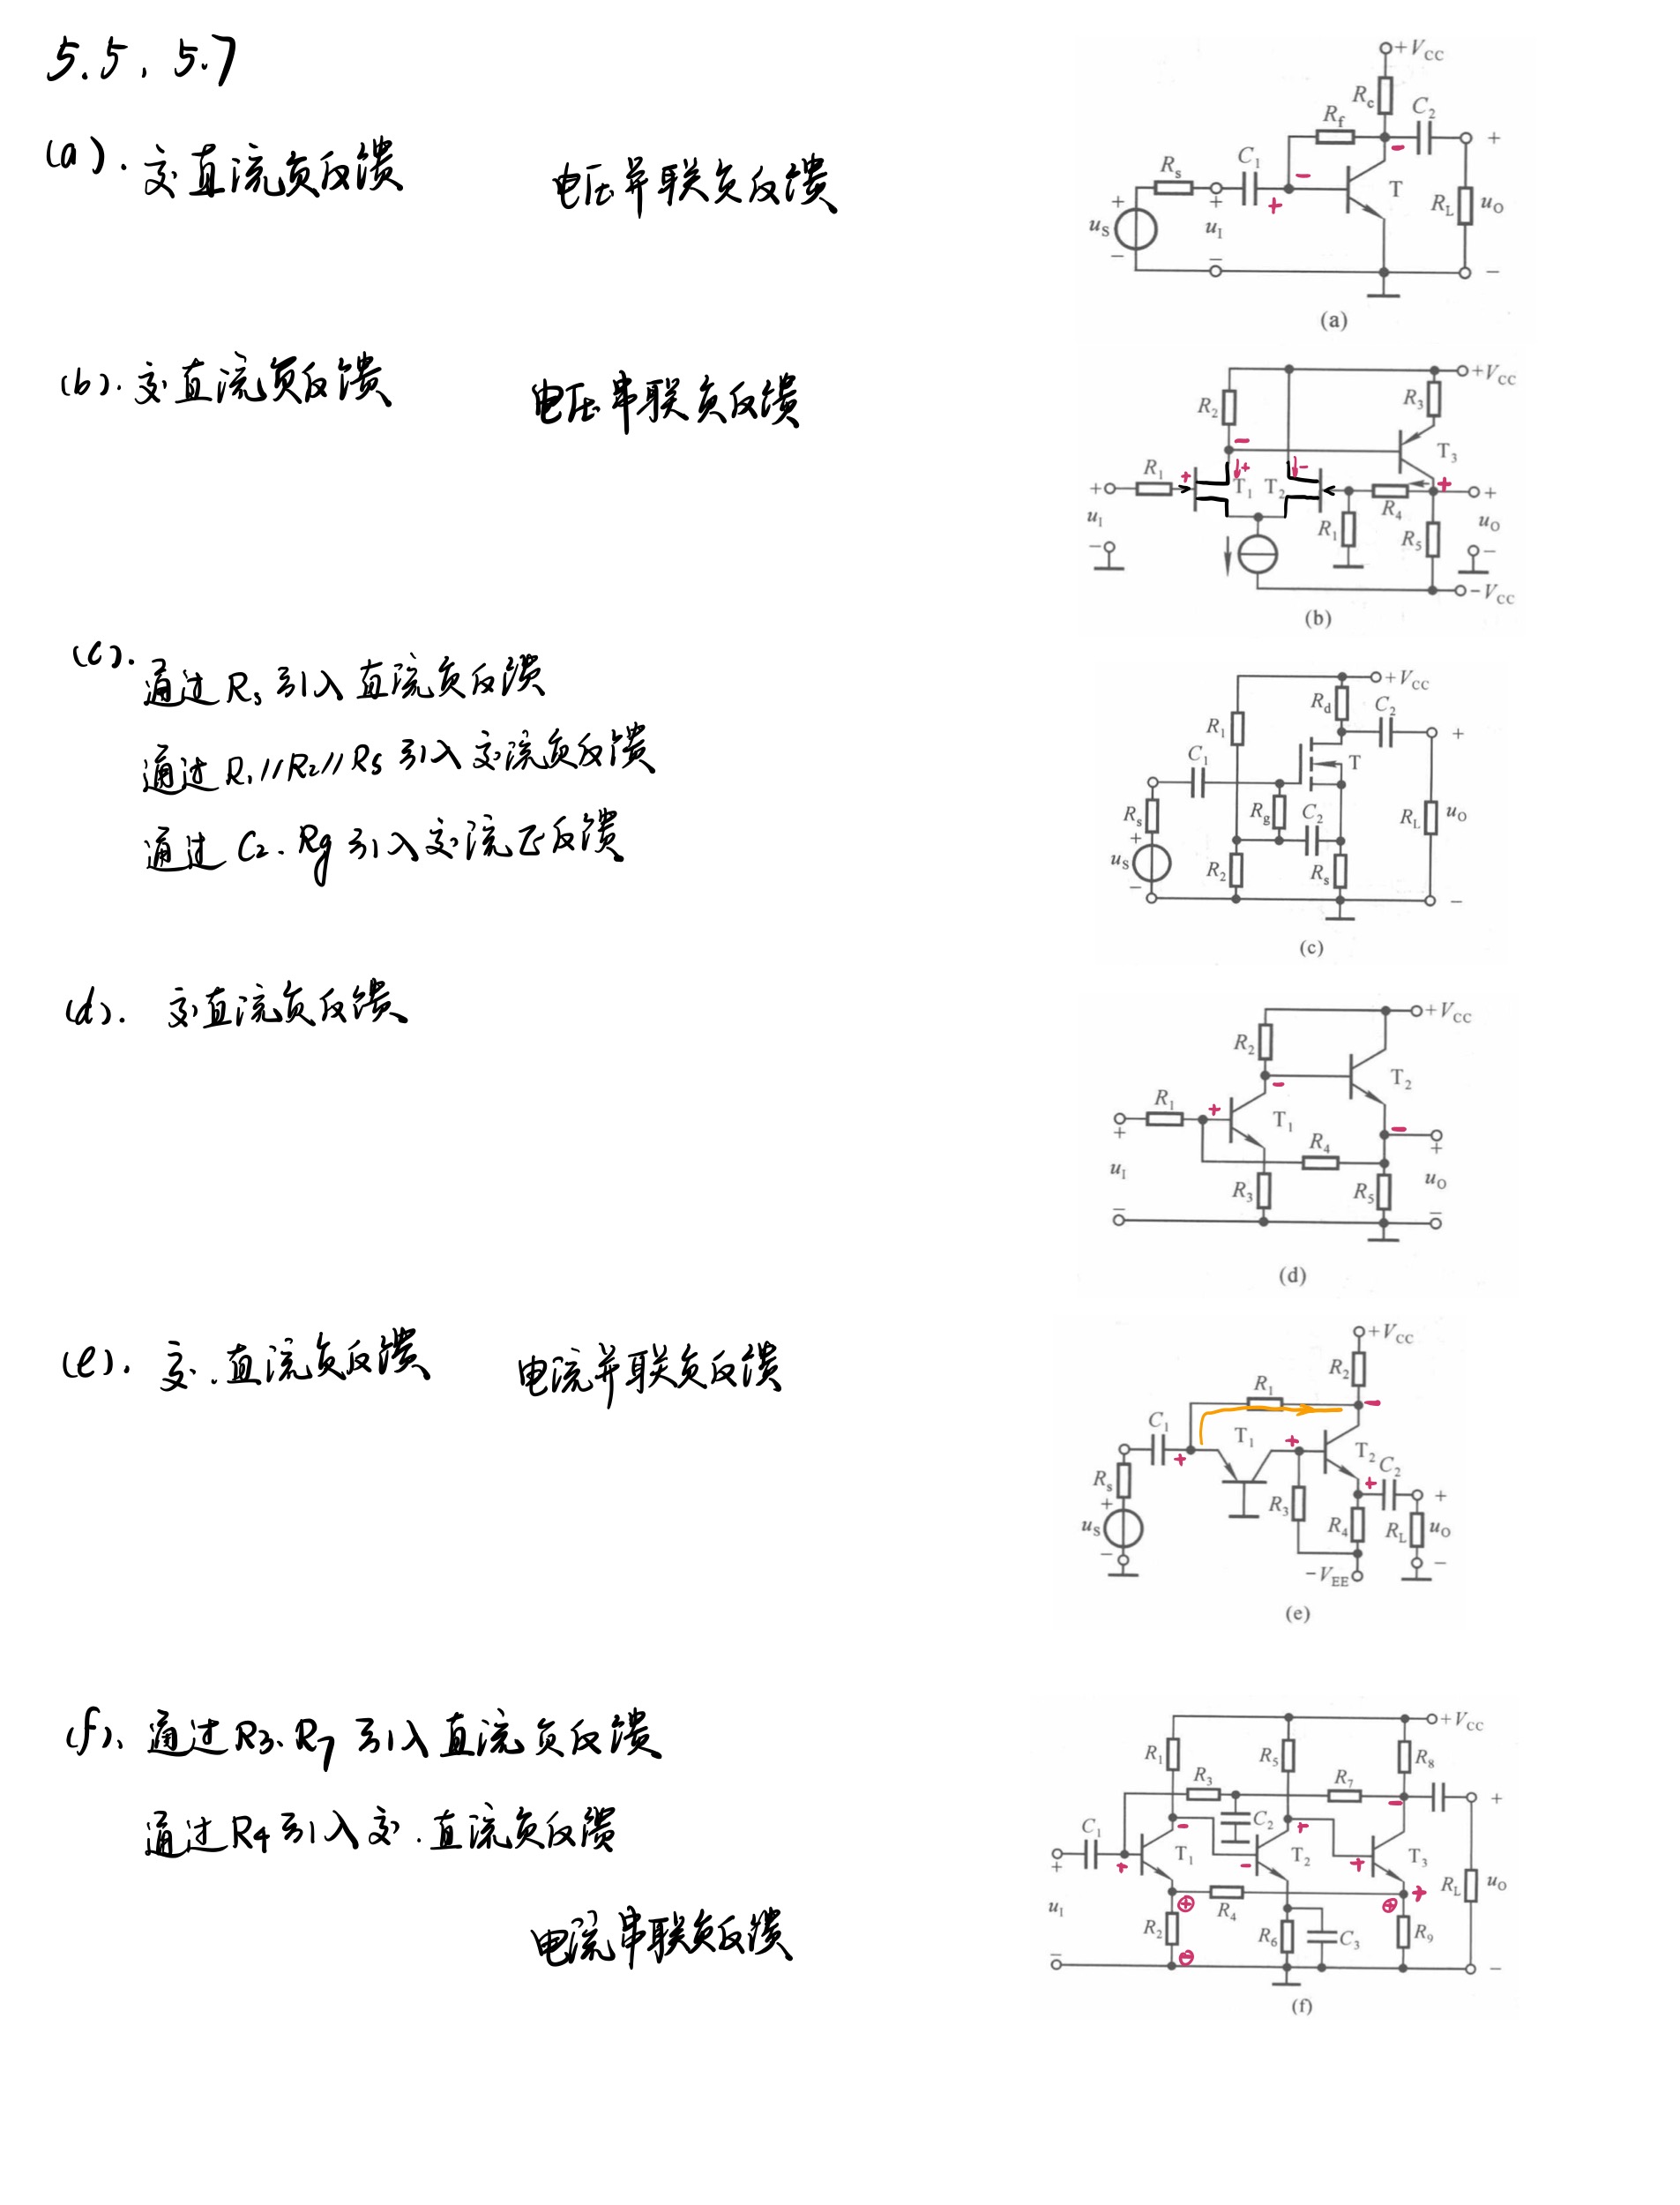 5.5、5.7
(a). 交直流负反馈 电压并联负反馈
+VCC
Rc C2
Rf
Rs C1 − −
+ + + T RL uO +
uS uI
− − −
(a)
(b). 交直流负反馈 电压串联负反馈
+VCC
R2 R3
− T3
R1 + + − T1 T2 R4 + +
uI R1 R5 uO
− −
−VCC
(b)
(c).
通过Rs引入直流负反馈
通过R1//R2//Rs引入交流负反馈
通过C2、Rg引入交流正反馈
+VCC
Rd C2
R1 +
C1 T
Rs Rg C2 RL uO
+
uS R2 Rs
− −
(c)
(d). 交直流负反馈
+VCC
R2
− T2
R1 + T1 −
+ R4 +
uI R3 R5 uO
− −
(d)
(e). 交.直流负反馈 电流并联负反馈
+VCC
R2
R1 −
C1 T1 + T2
+ + C2
Rs R3 +
+ R4 RL uO
uS
− −VEE −
(e)
(f)、通过R3、R7引入直流负反馈
通过R4引入交.直流负反馈
电流串联负反馈
+VCC
R1 R5 R8
R3 R7 − +
C1 − C2 +
+ + T1 − T2 + T3
uI + R4 + + RL uO
R2 R6 C3 R9
− − −
(f)